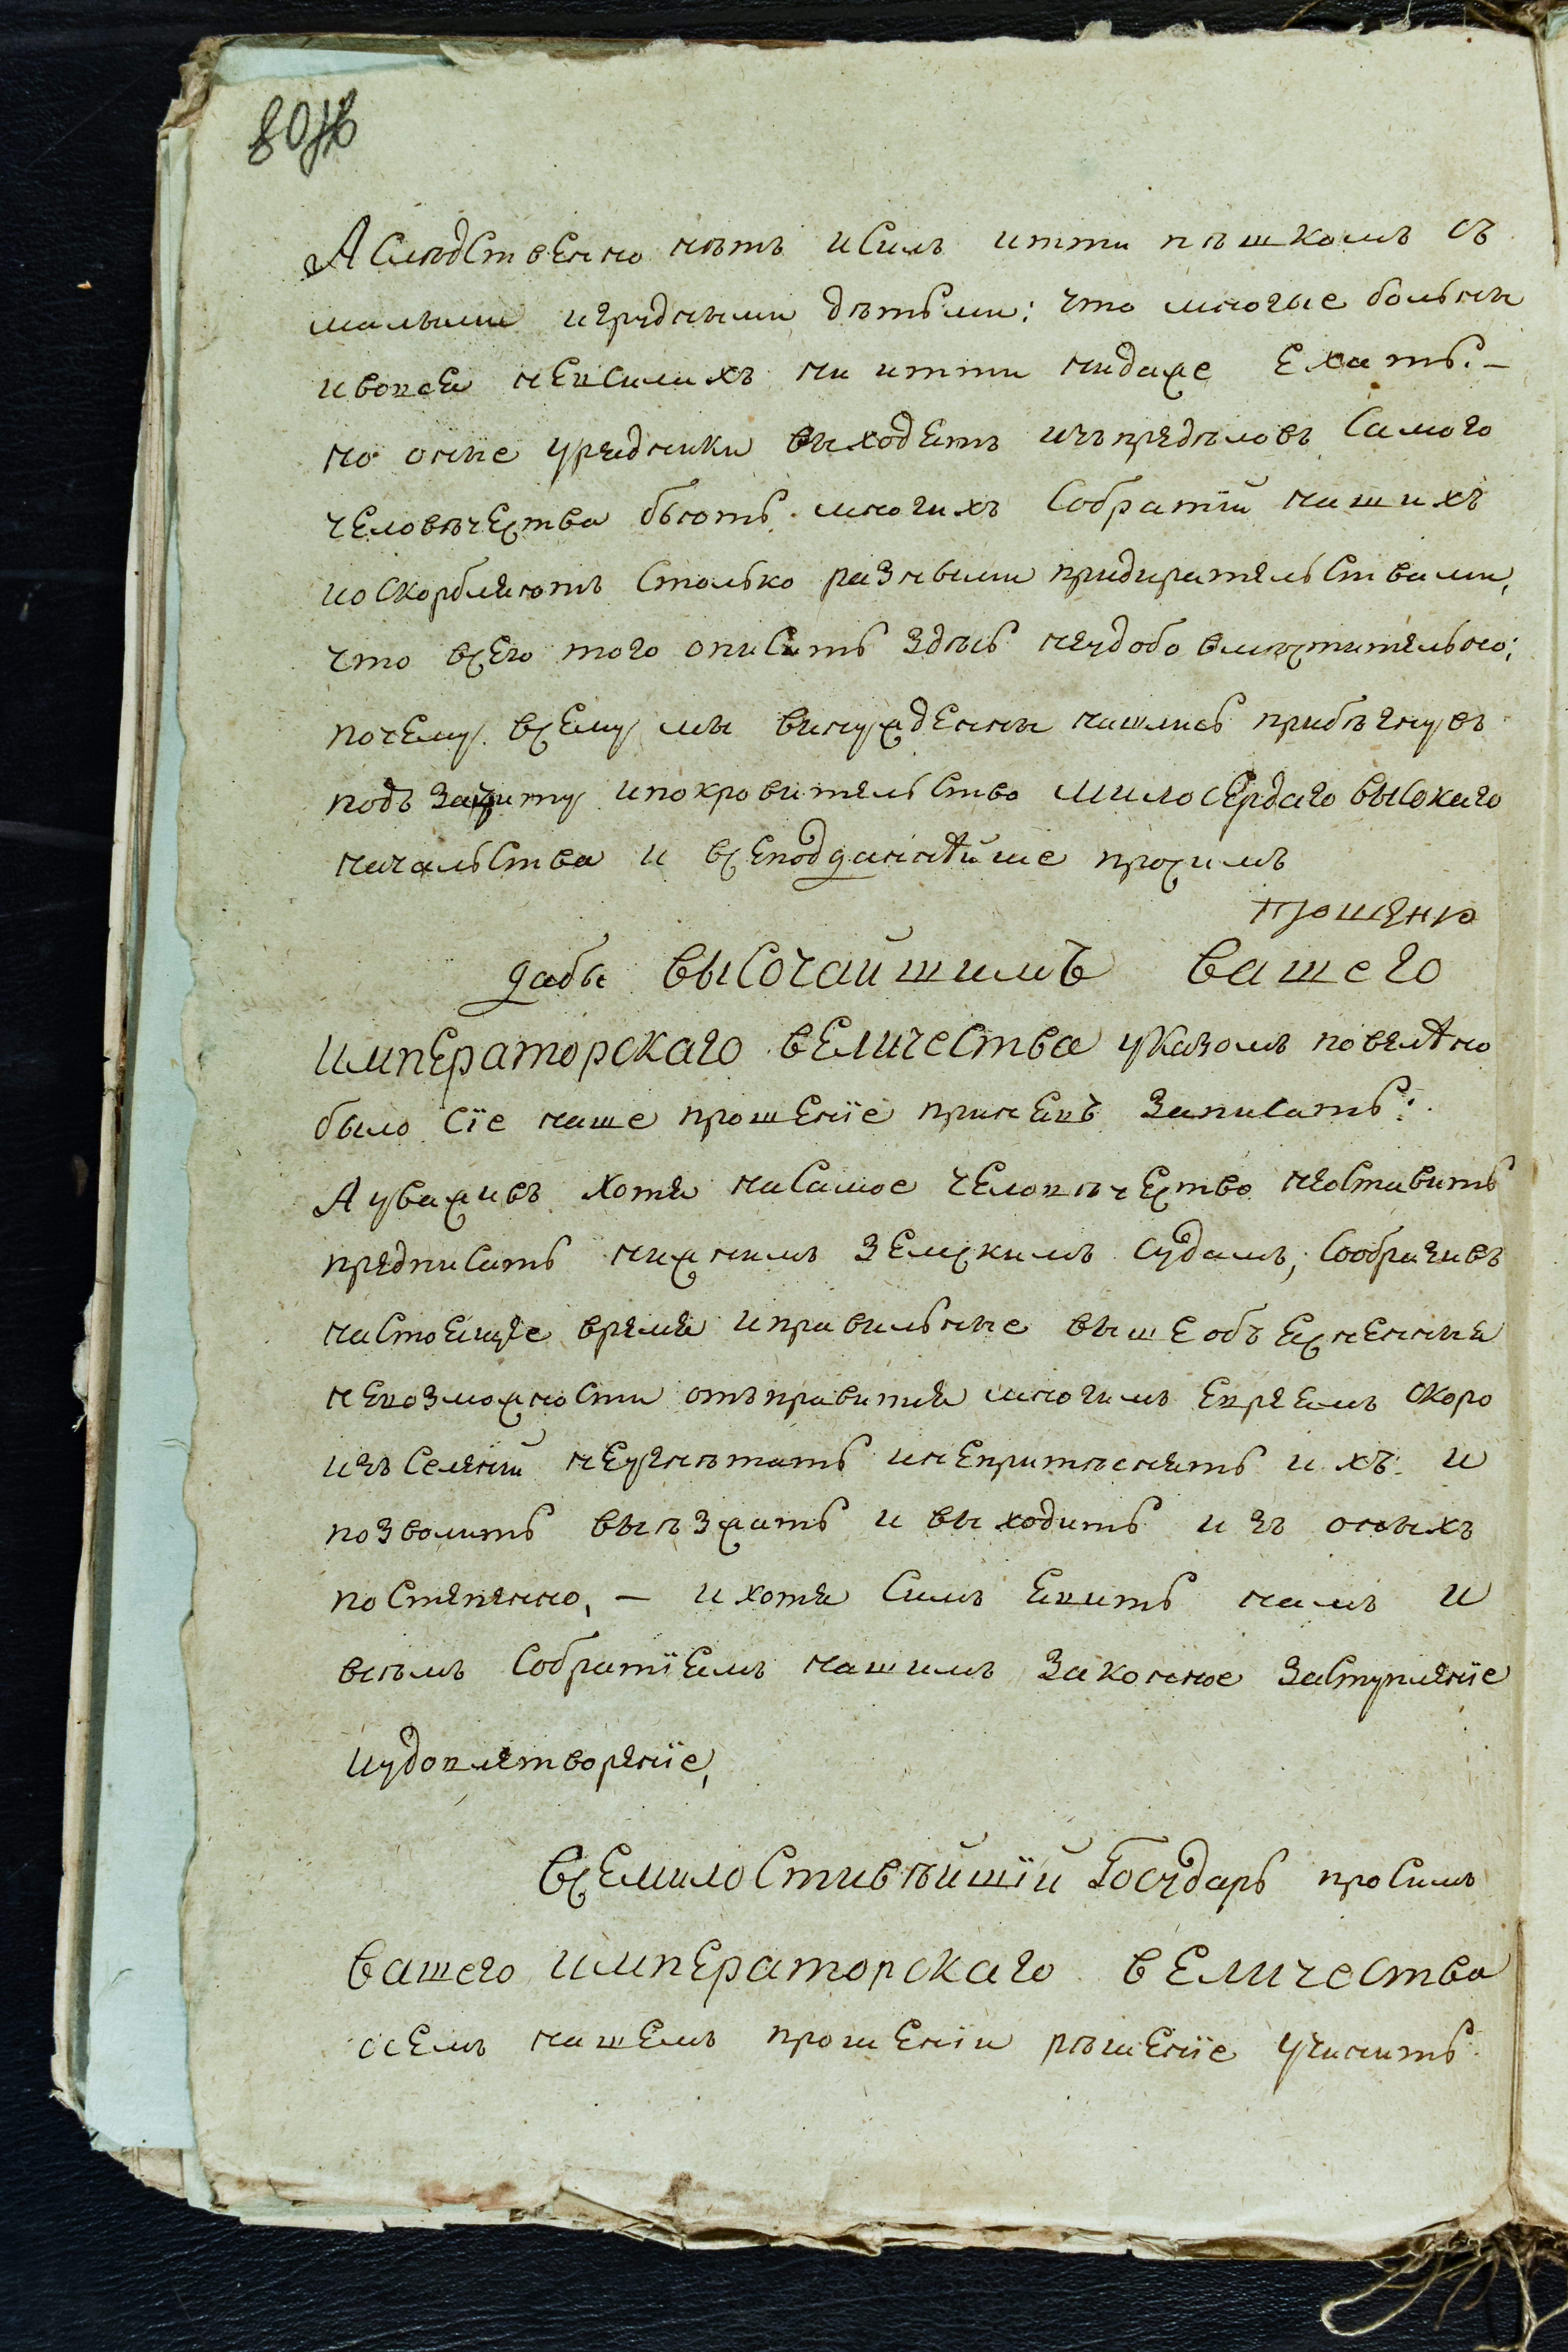 А следственно нѣтъ и силъ итти пѣшкомъ съ
малыми и грудными дѣтьми: что многые больны
и вовся невсилахъ ни итти нидаже ехать. —
но оные урядники выходятъ изъ предѣловъ самого
человѣчества бьють многихъ собратiй нашихъ
и оскорбляютъ столько разными придирательствами,
что всего того описать здѣсь неудобо вмѣстительно;
почему всему мы вынужденны нашлись прибѣгнувъ
подъ защиту и покровительство милосердаго высокаго
начальства и всеподданнѣйше просимъ
прошению
дабы высочайшимъ вашего
императорскаго величества указомъ повелѣно
было сïе наше прошенïе принявъ записать:
А уваживъ хотя на самое человѣчество неоставить
предписать нижнимъ земскимъ судамъ, сообразивъ
настоящее время и правильные вышеобъясненныя
невозможности отъправится многимъ евреямъ скоро
изъ селенïй неугнѣтать и непритѣснять ихъ и
позволить выѣзжать и выходить изъ оныхъ
постепенно, — и хотя симъ явить намъ и
всѣмъ собратïямъ нашимъ законное заступленïе
и удовлетворенïе,
всемилостивѣйшïй государь просимъ
вашего императорскаго величества
осемъ нашемъ прошенïи рѣшенïе учинить